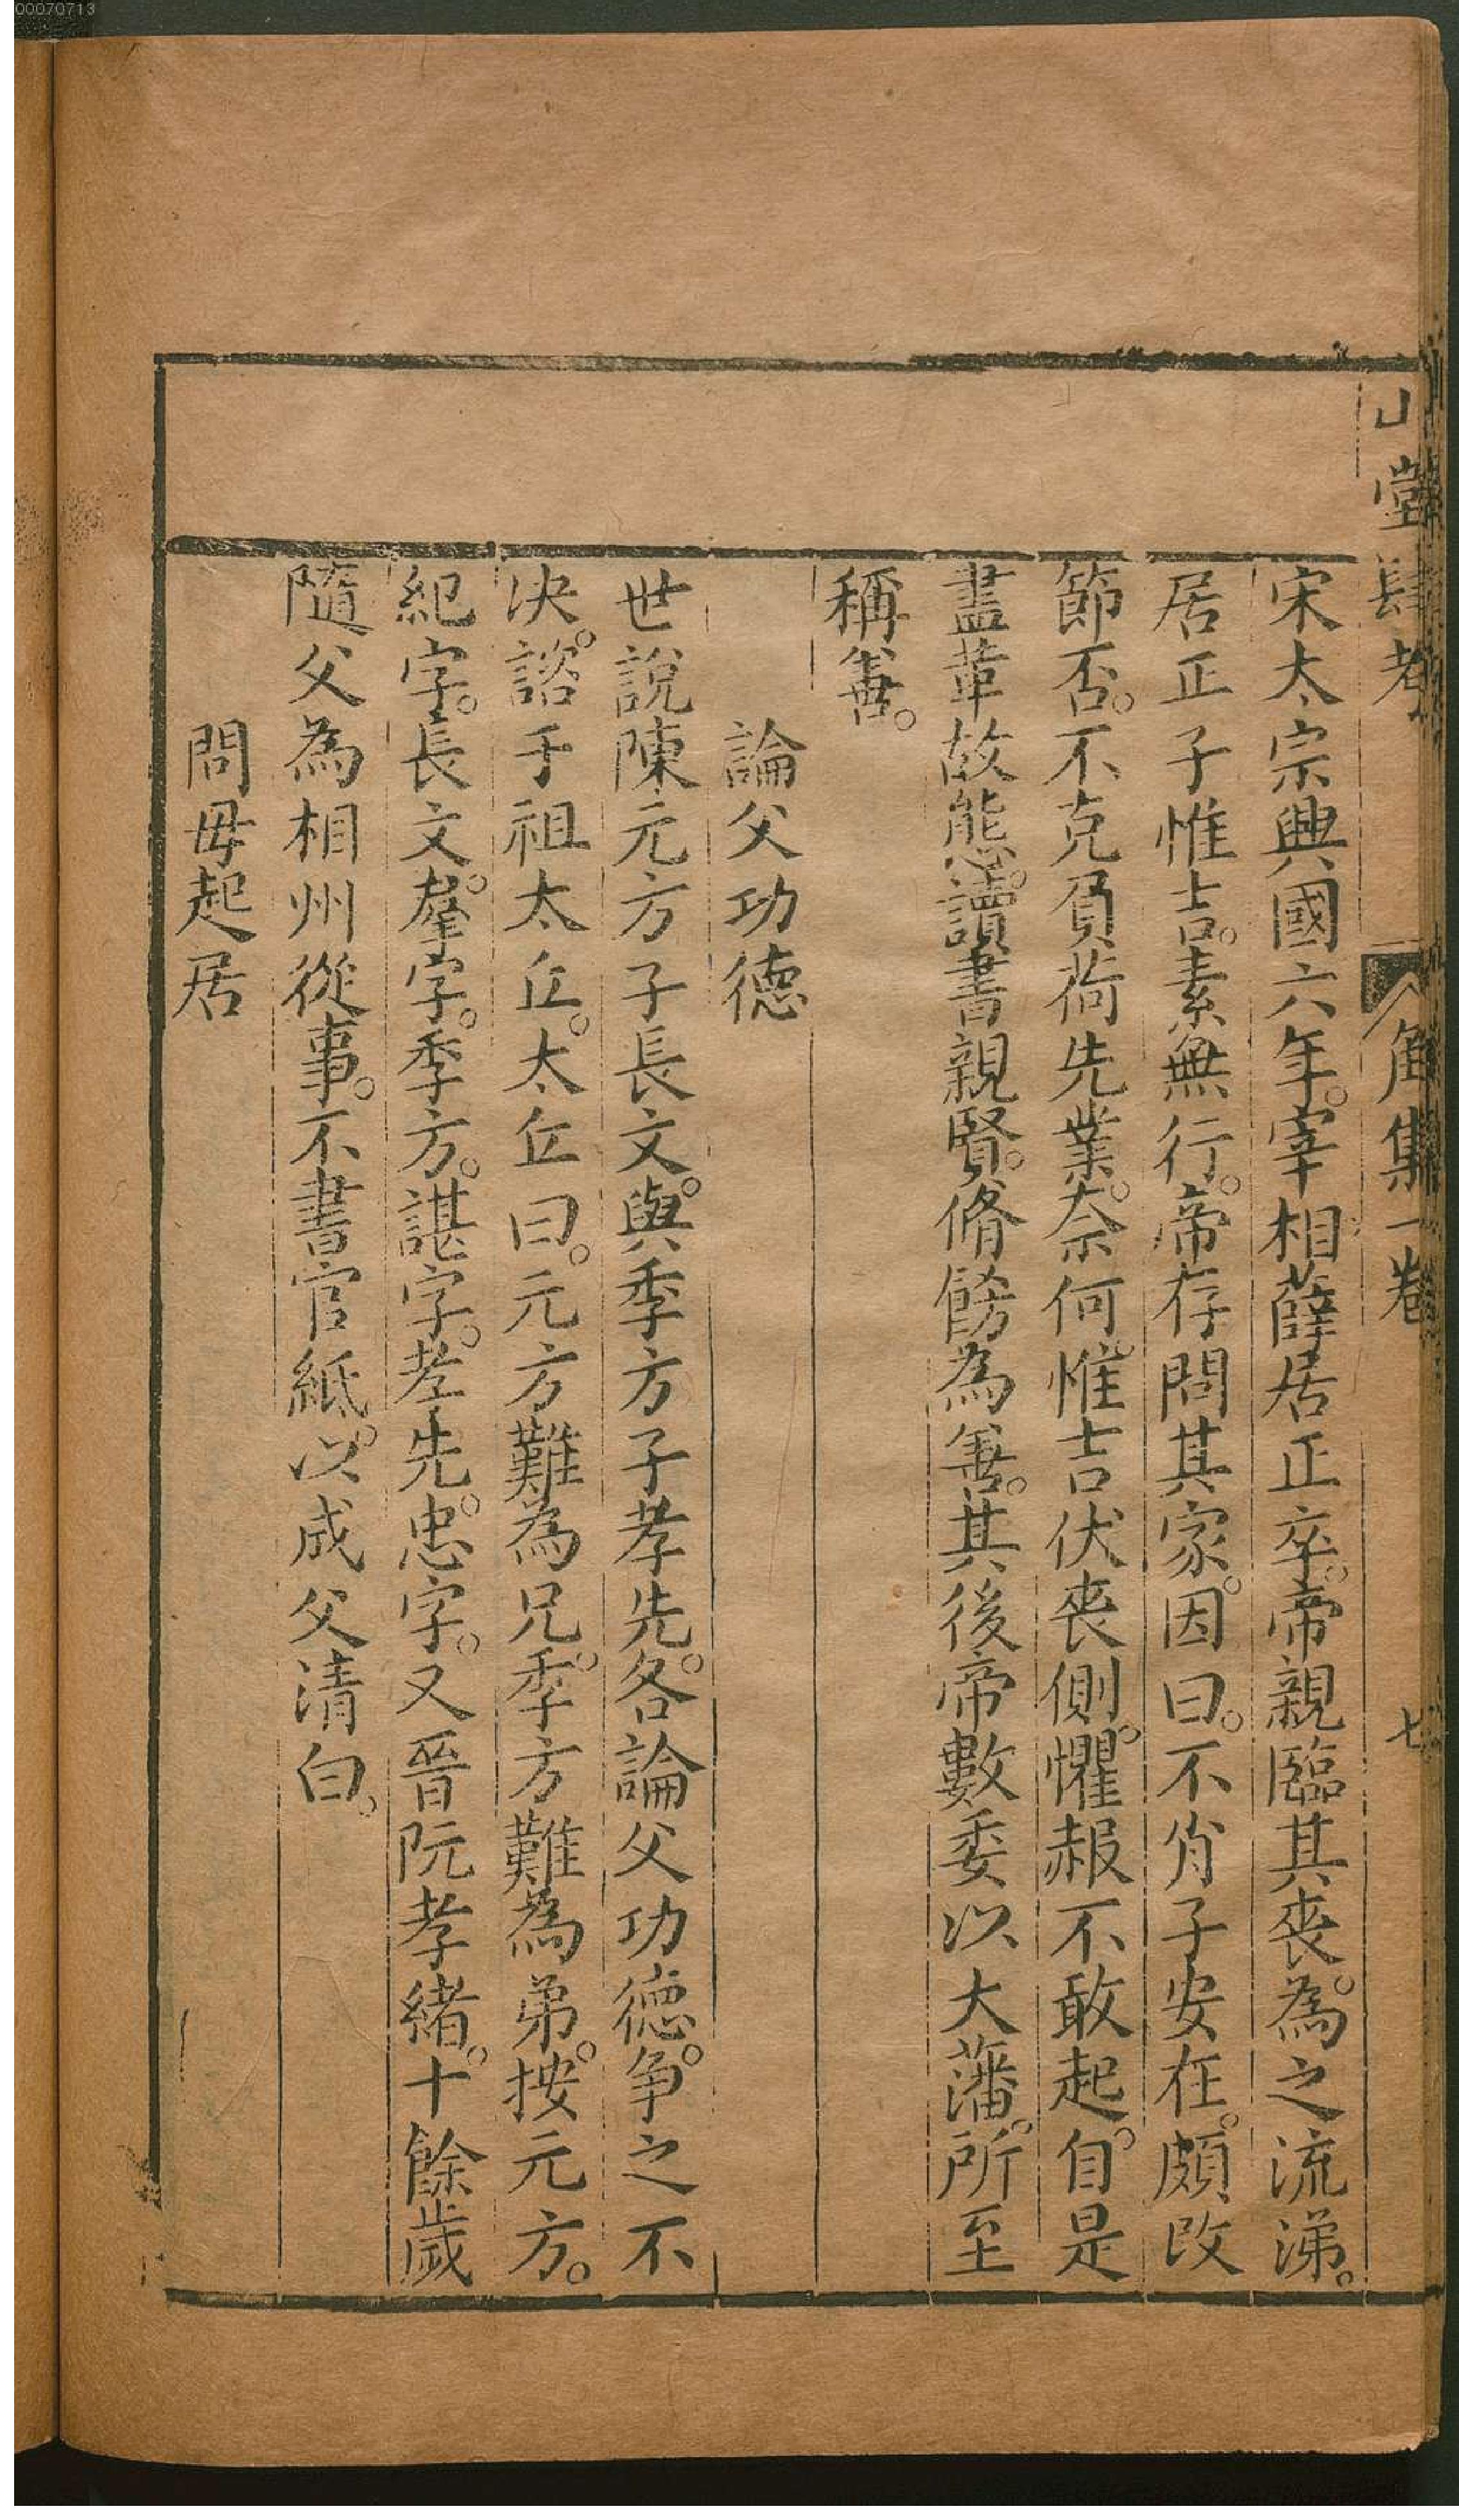 00070713
山堂肆考 角集一卷 七
宋太宗興國六年。宰相薛居正卒。帝親臨其喪。為之流涕。
居正子惟吉。素無行。帝存問其家。因曰。不肖子安在。頗改
節否。不克負荷先業。奈何。惟吉伏喪側。懼赧不敢起。自是
盡革故態。讀書親賢。脩飭為善。其後帝數委以大藩。所至
稱善。
論父功德
世說陳元方子長文。與季方子孝先。各論父功德。争之不
决。諮于祖太丘。太丘曰。元方難為兄。季方難為弟。按元方。
紀字。長文。羣字。季方。諶字。孝先。忠字。又晉阮孝緒。十餘歲
隨父為相州從事。不書官紙。以成父清白。
問毋起居